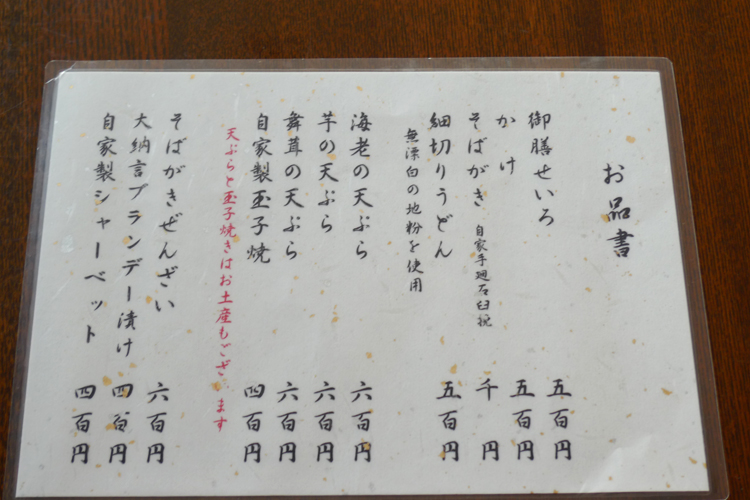 お品書
御膳せいろ 五百円
かけ 五百円
そばがき 自家手廻石臼挽 千円
細切りうどん 五百円
無漂白の地粉を使用
海老の天ぷら 六百円
芋の天ぷら 六百円
舞茸の天ぷら 六百円
自家製玉子焼 四百円
天ぷらと玉子焼きはお土産もございます
そばがきぜんざい 六百円
大納言ブランデー漬け 四百円
自家製シャーベット 四百円